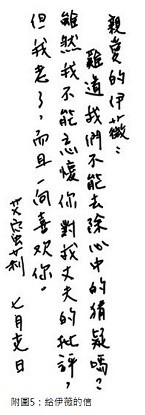 親愛的伊薇:
難道我們不能去除心中的猜疑嗎?
雖然我不能忘懷你對我丈夫的批評,
但我老了,而且一向喜欢你。
艾蜜莉 七月 日
附圖5:給伊薇的信